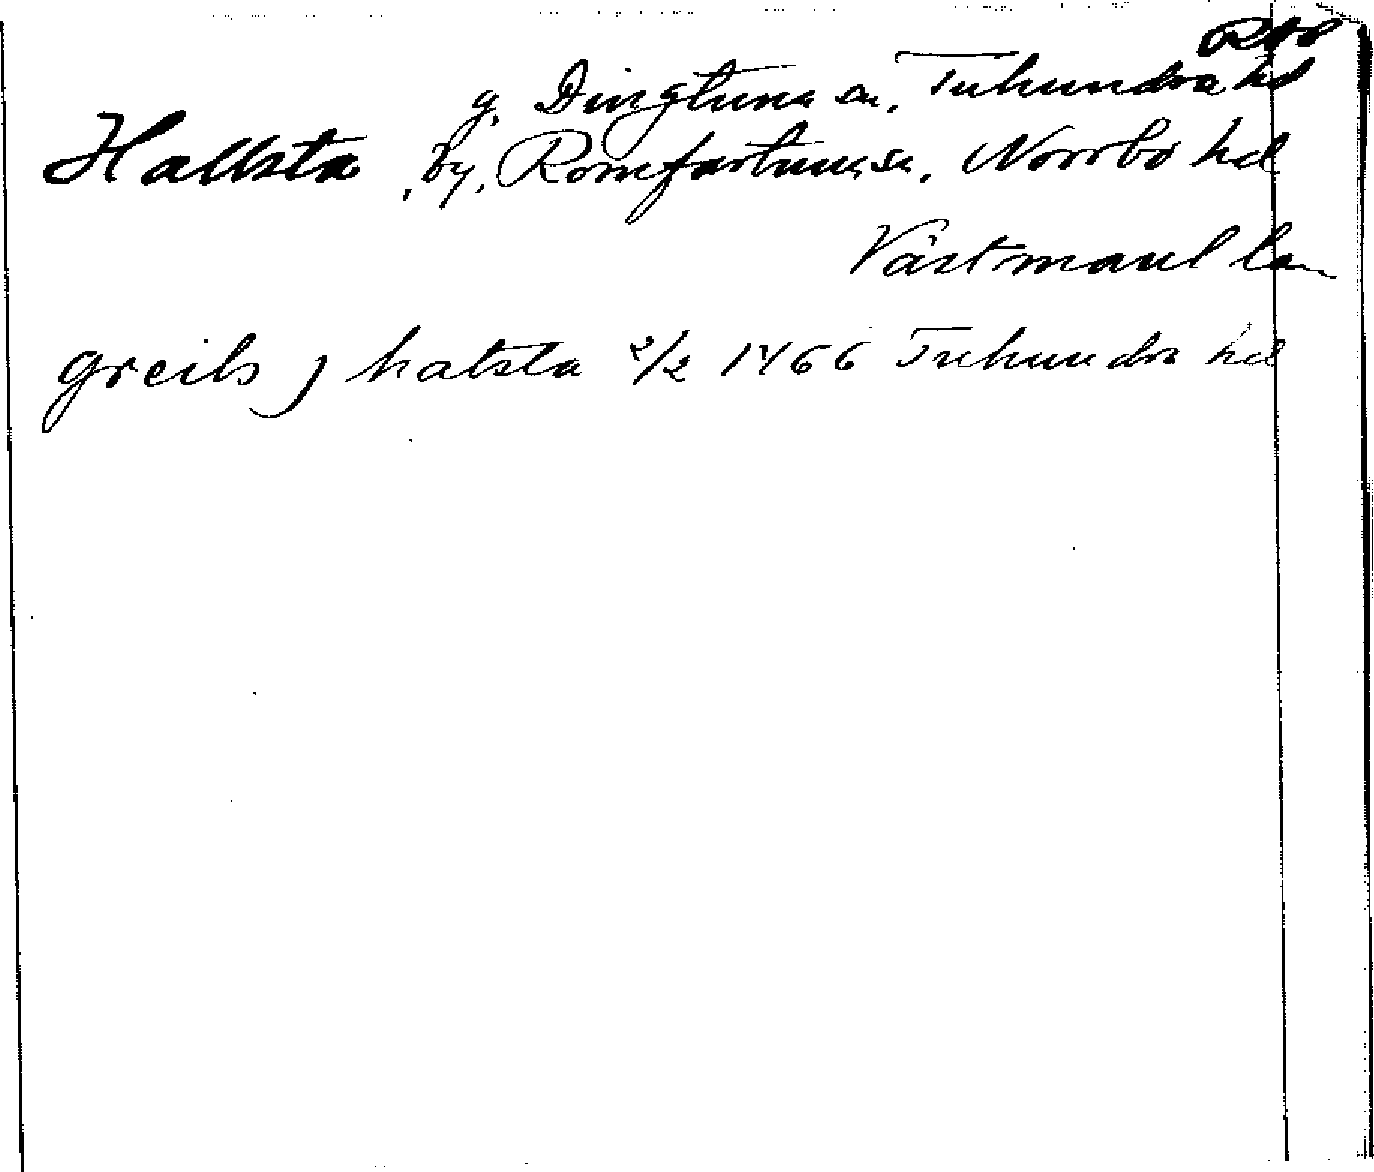 g. Dingtuna sn, Tuhundra hd
Hallsta, by, Romfartuna sn, Norrbo hd
Västmanl län
greils j halsta 2/2 1466 Tuhundra hd